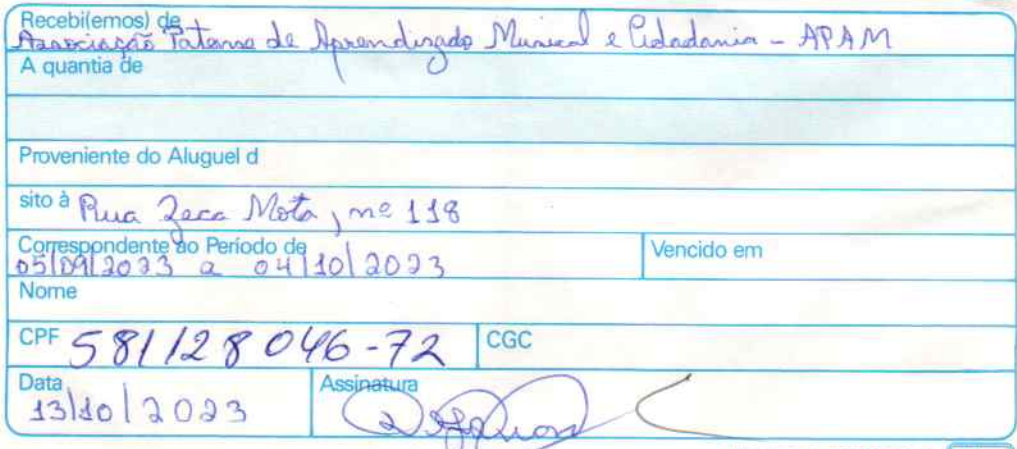 Recebi(emos) de
Associação Patense de Aprendizado Musical e Cidadania - APAM
A quantia de
Proveniente do Aluguel d
sito à Rua Zeca Mota, nº 118
Correspondente ao Período de
05/09/2023 a 04/10/2023
Vencido em
Nome
CPF 581128046-72
CGC
Data
13/10/2023
Assinatura